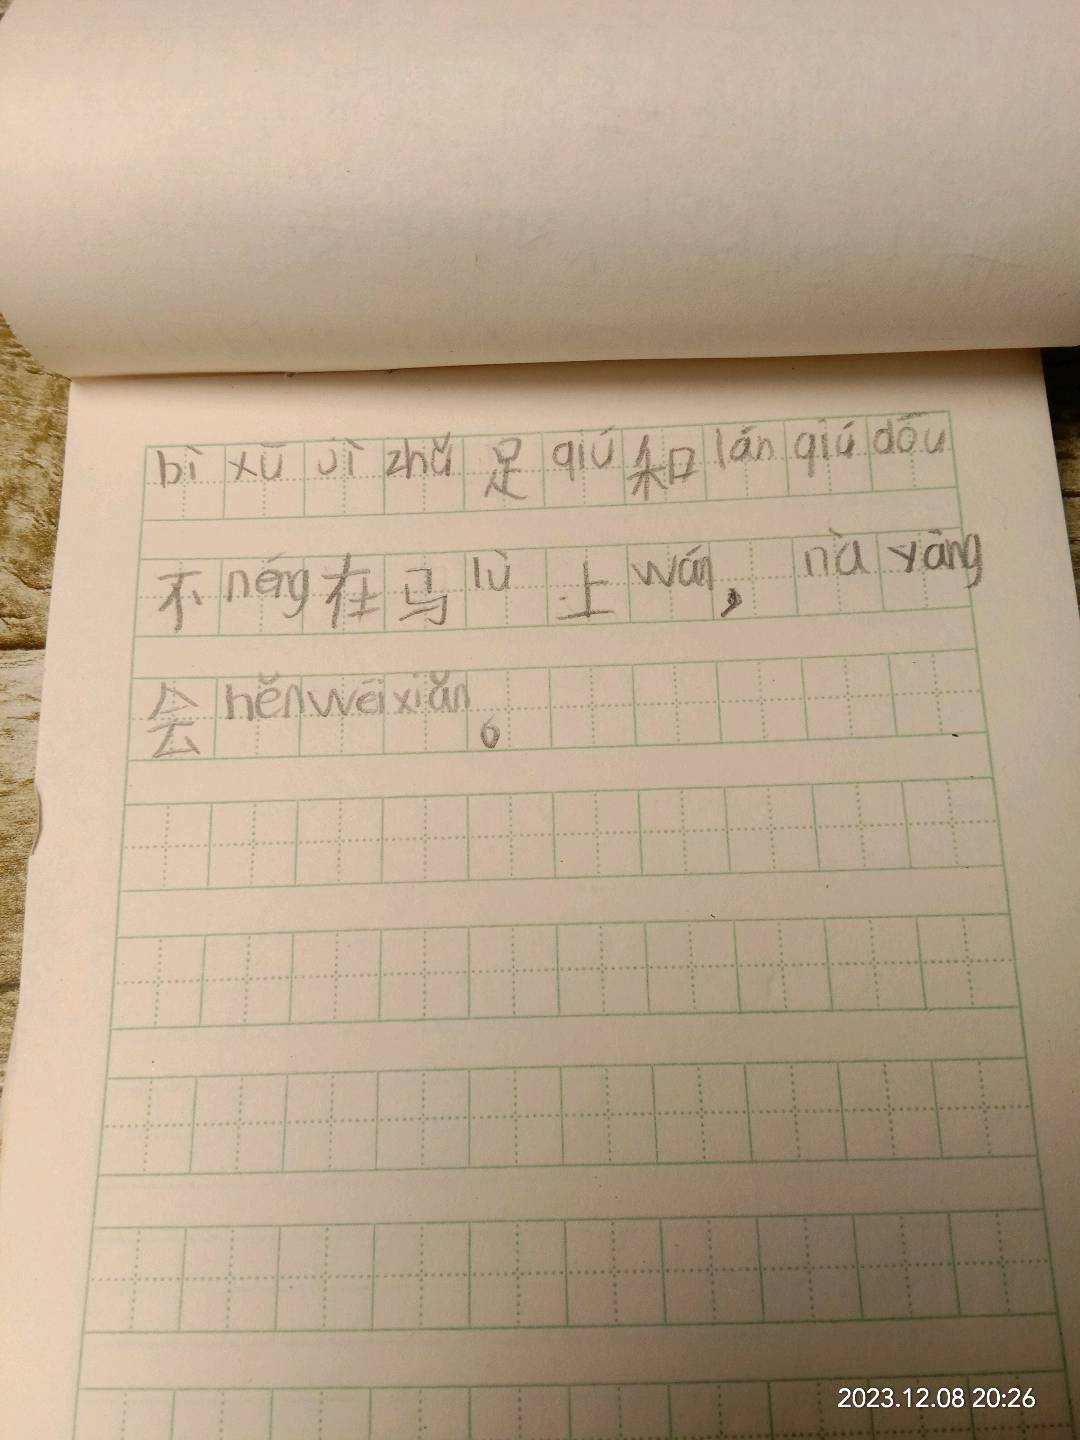 bì xū jì zhǔ 足 qiú 和 lán qiú dōu
不 néng 在 马 lù 上 wán, nà yàng
会 hěn wēi xiǎn。
2023.12.08 20:26